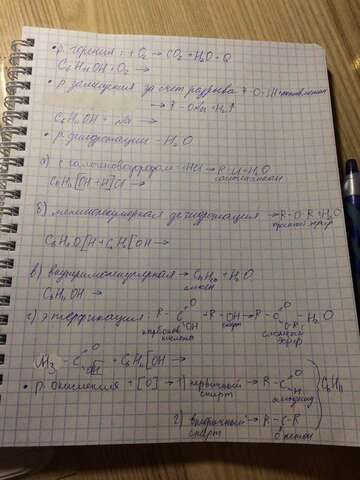 • р. горения: + O₂ → CO₂ + H₂O + Q
C₅H₁₁OH + O₂ →
• р. замещения за счет разрыва R-O-|H
→ R-ONa + H₂↑
C₅H₁₁OH + Na →
• р. дегидратации -H₂O
а) с галогеноводородом +HCl → R-Cl + H₂O
C₅H₁₁[OH + H]Cl →
б) межмолекулярная дегидратация → R-O-R + H₂O
простой эфир
C₅H₁₁O[H + C₅H₁₁[OH →
в) внутримолекулярная → C₅H₁₀ + H₂O
алкен
C₅H₁₁OH →
г) этерификация: R-C O OH + R-OH → R-C O O-R + H₂O
карбоновая кислота спирт сложный эфир
CH₃-C O OH + C₅H₁₁[OH →
• р. окисления + [O] → 1) первичный спирт → R-C O H альдегид
C₅H₁₁
2) вторичный спирт → R-C-R O кетон